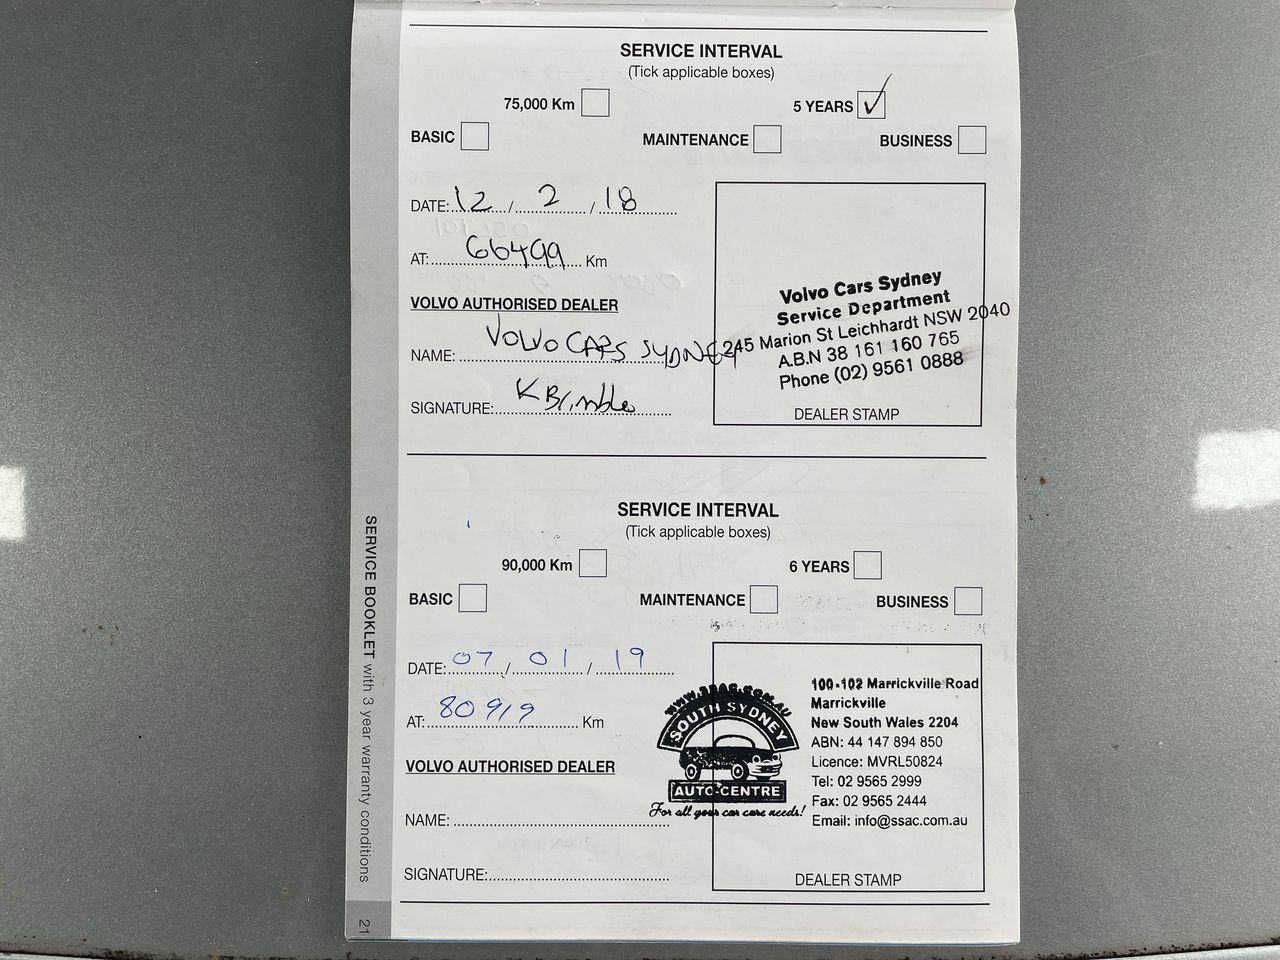 SERVICE INTERVAL
(Tick applicable boxes)
75,000 Km 5 YEARS ✓
BASIC MAINTENANCE BUSINESS
DATE: 12 / 2 / 18
AT: 66499 Km
VOLVO AUTHORISED DEALER
NAME: VOLVO CARS SYDNEY
SIGNATURE: K Brimble
Volvo Cars Sydney
Service Department
245 Marion St Leichhardt NSW 2040
A.B.N 38 161 160 765
Phone (02) 9561 0888
DEALER STAMP
SERVICE INTERVAL
(Tick applicable boxes)
90,000 Km 6 YEARS
BASIC MAINTENANCE BUSINESS
DATE: 07 / 01 / 19
AT: 80919 Km
VOLVO AUTHORISED DEALER
NAME:
SIGNATURE:
WWW.SSAC.COM.AU
SOUTH SYDNEY
AUTO-CENTRE
For all your car care needs!
100-102 Marrickville Road
Marrickville
New South Wales 2204
ABN: 44 147 894 850
Licence: MVRL50824
Tel: 02 9565 2999
Fax: 02 9565 2444
Email: info@ssac.com.au
DEALER STAMP
SERVICE BOOKLET with 3 year warranty conditions
21